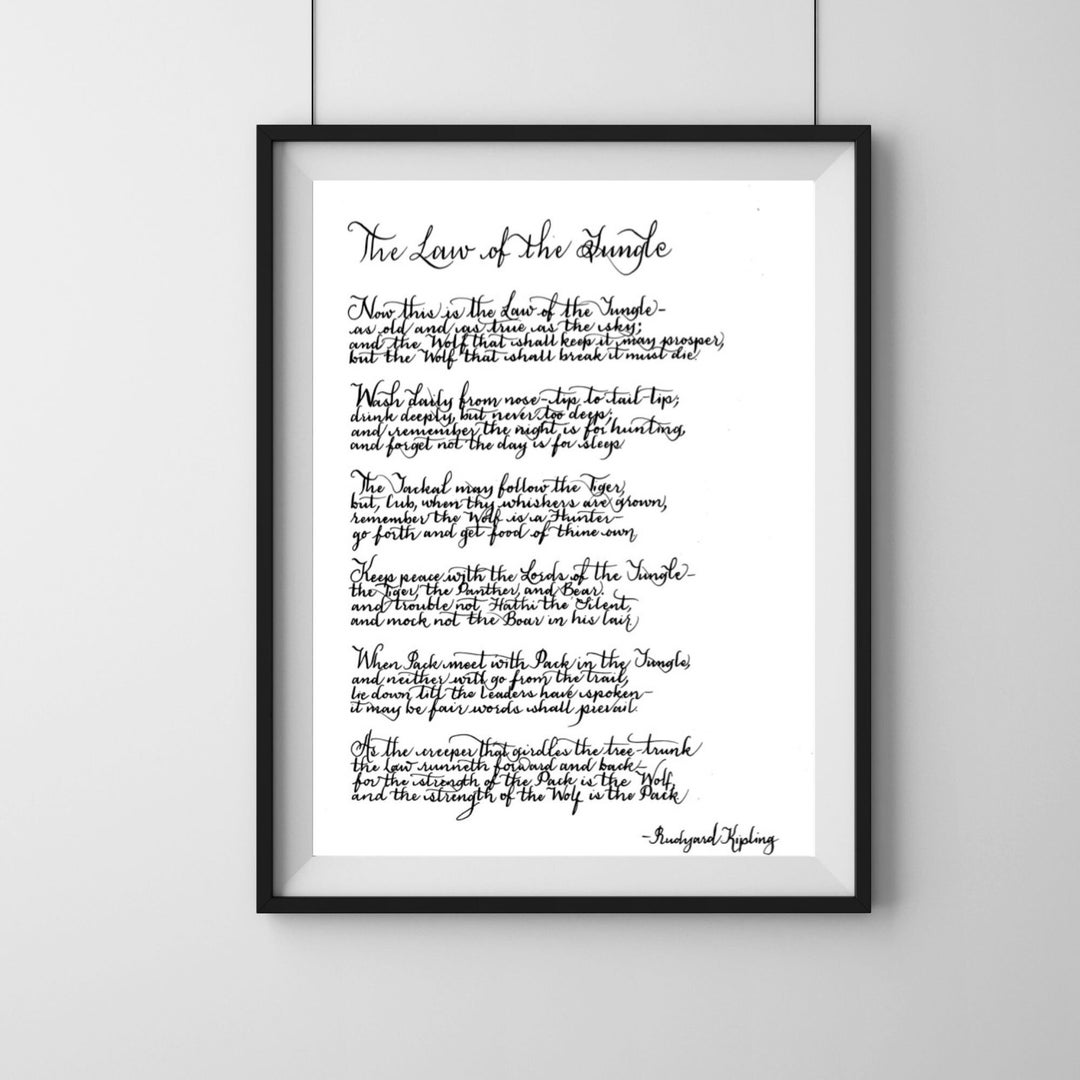 The Law of the Jungle
Now this is the Law of the Jungle-
as old and as true as the sky;
and the Wolf that shall keep it may prosper,
but the Wolf that shall break it must die.
Wash daily from nose-tip to tail-tip;
drink deeply, but never too deep;
and remember the night is for hunting,
and forget not the day is for sleep
The Jackal may follow the Tiger,
but, Cub, when thy whiskers are grown,
remember the Wolf is a Hunter-
go forth and get food of thine own
Keep peace with the Lords of the Jungle-
the Tiger, the Panther, and Bear.
and trouble not Hathi the Silent,
and mock not the Boar in his lair
When Pack meet with Pack in the Jungle,
and neither will go from the trail,
lie down till the Leaders have spoken-
it may be fair words shall prevail.
As the creeper that girdles the tree-trunk
the Law runneth forward and back-
for the strength of the Pack is the Wolf,
and the strength of the Wolf is the Pack
-Rudyard Kipling